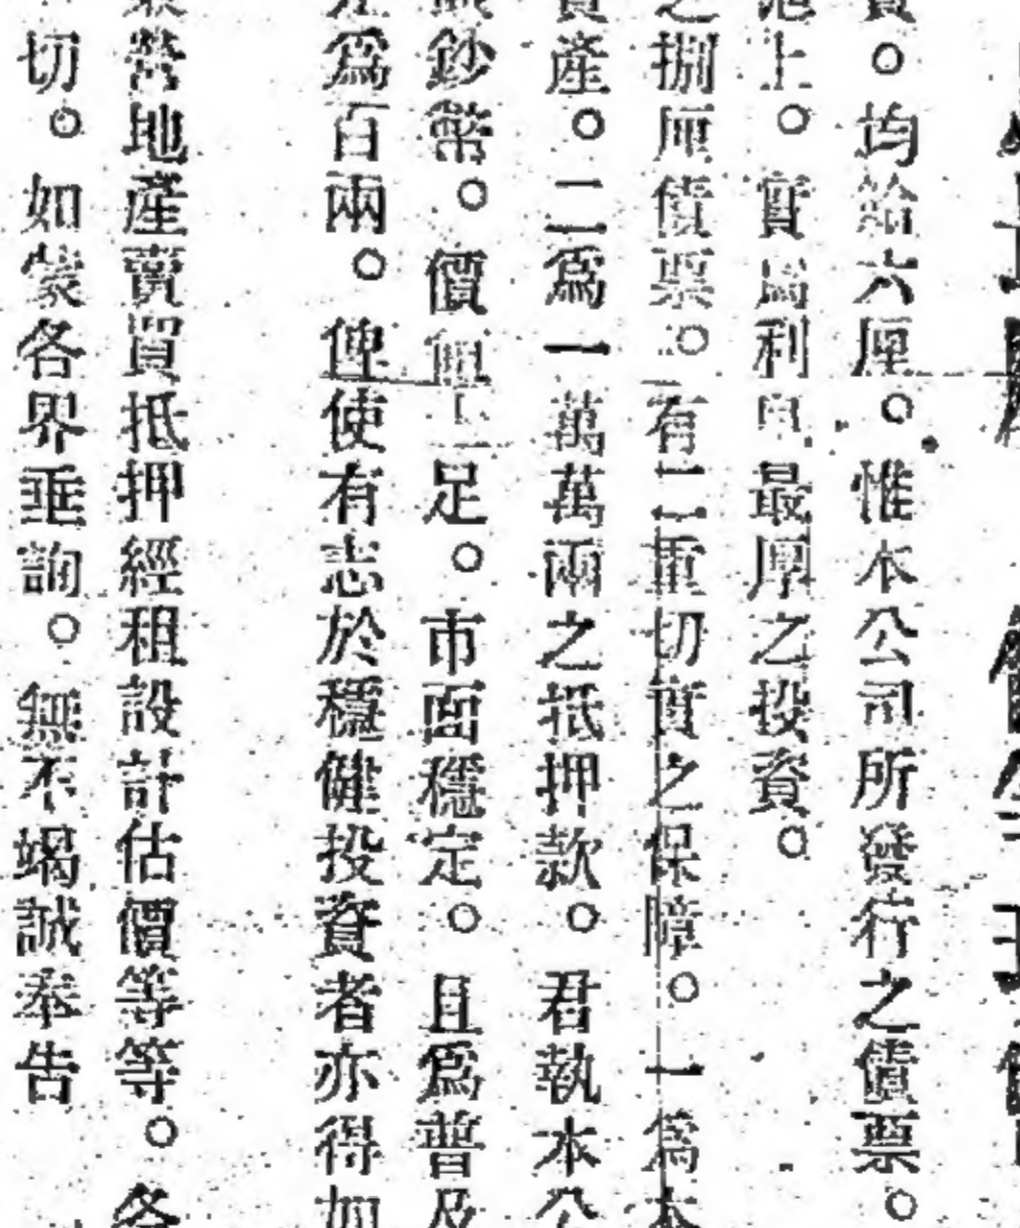 。均給六厘。惟本公司所發行之債票。
上。實爲利息最厚之投資。
之捌厘債票。有二重切實之保障。一爲本
產。二爲一萬萬兩之抵押款。君執本公
鈔幣。價值十足。市面穩定。且爲普及
爲百兩。俾使有志於穩健投資者亦得加
營地產賣買抵押經租設計估價等等。各
切。如蒙各界垂詢。無不竭誠奉告